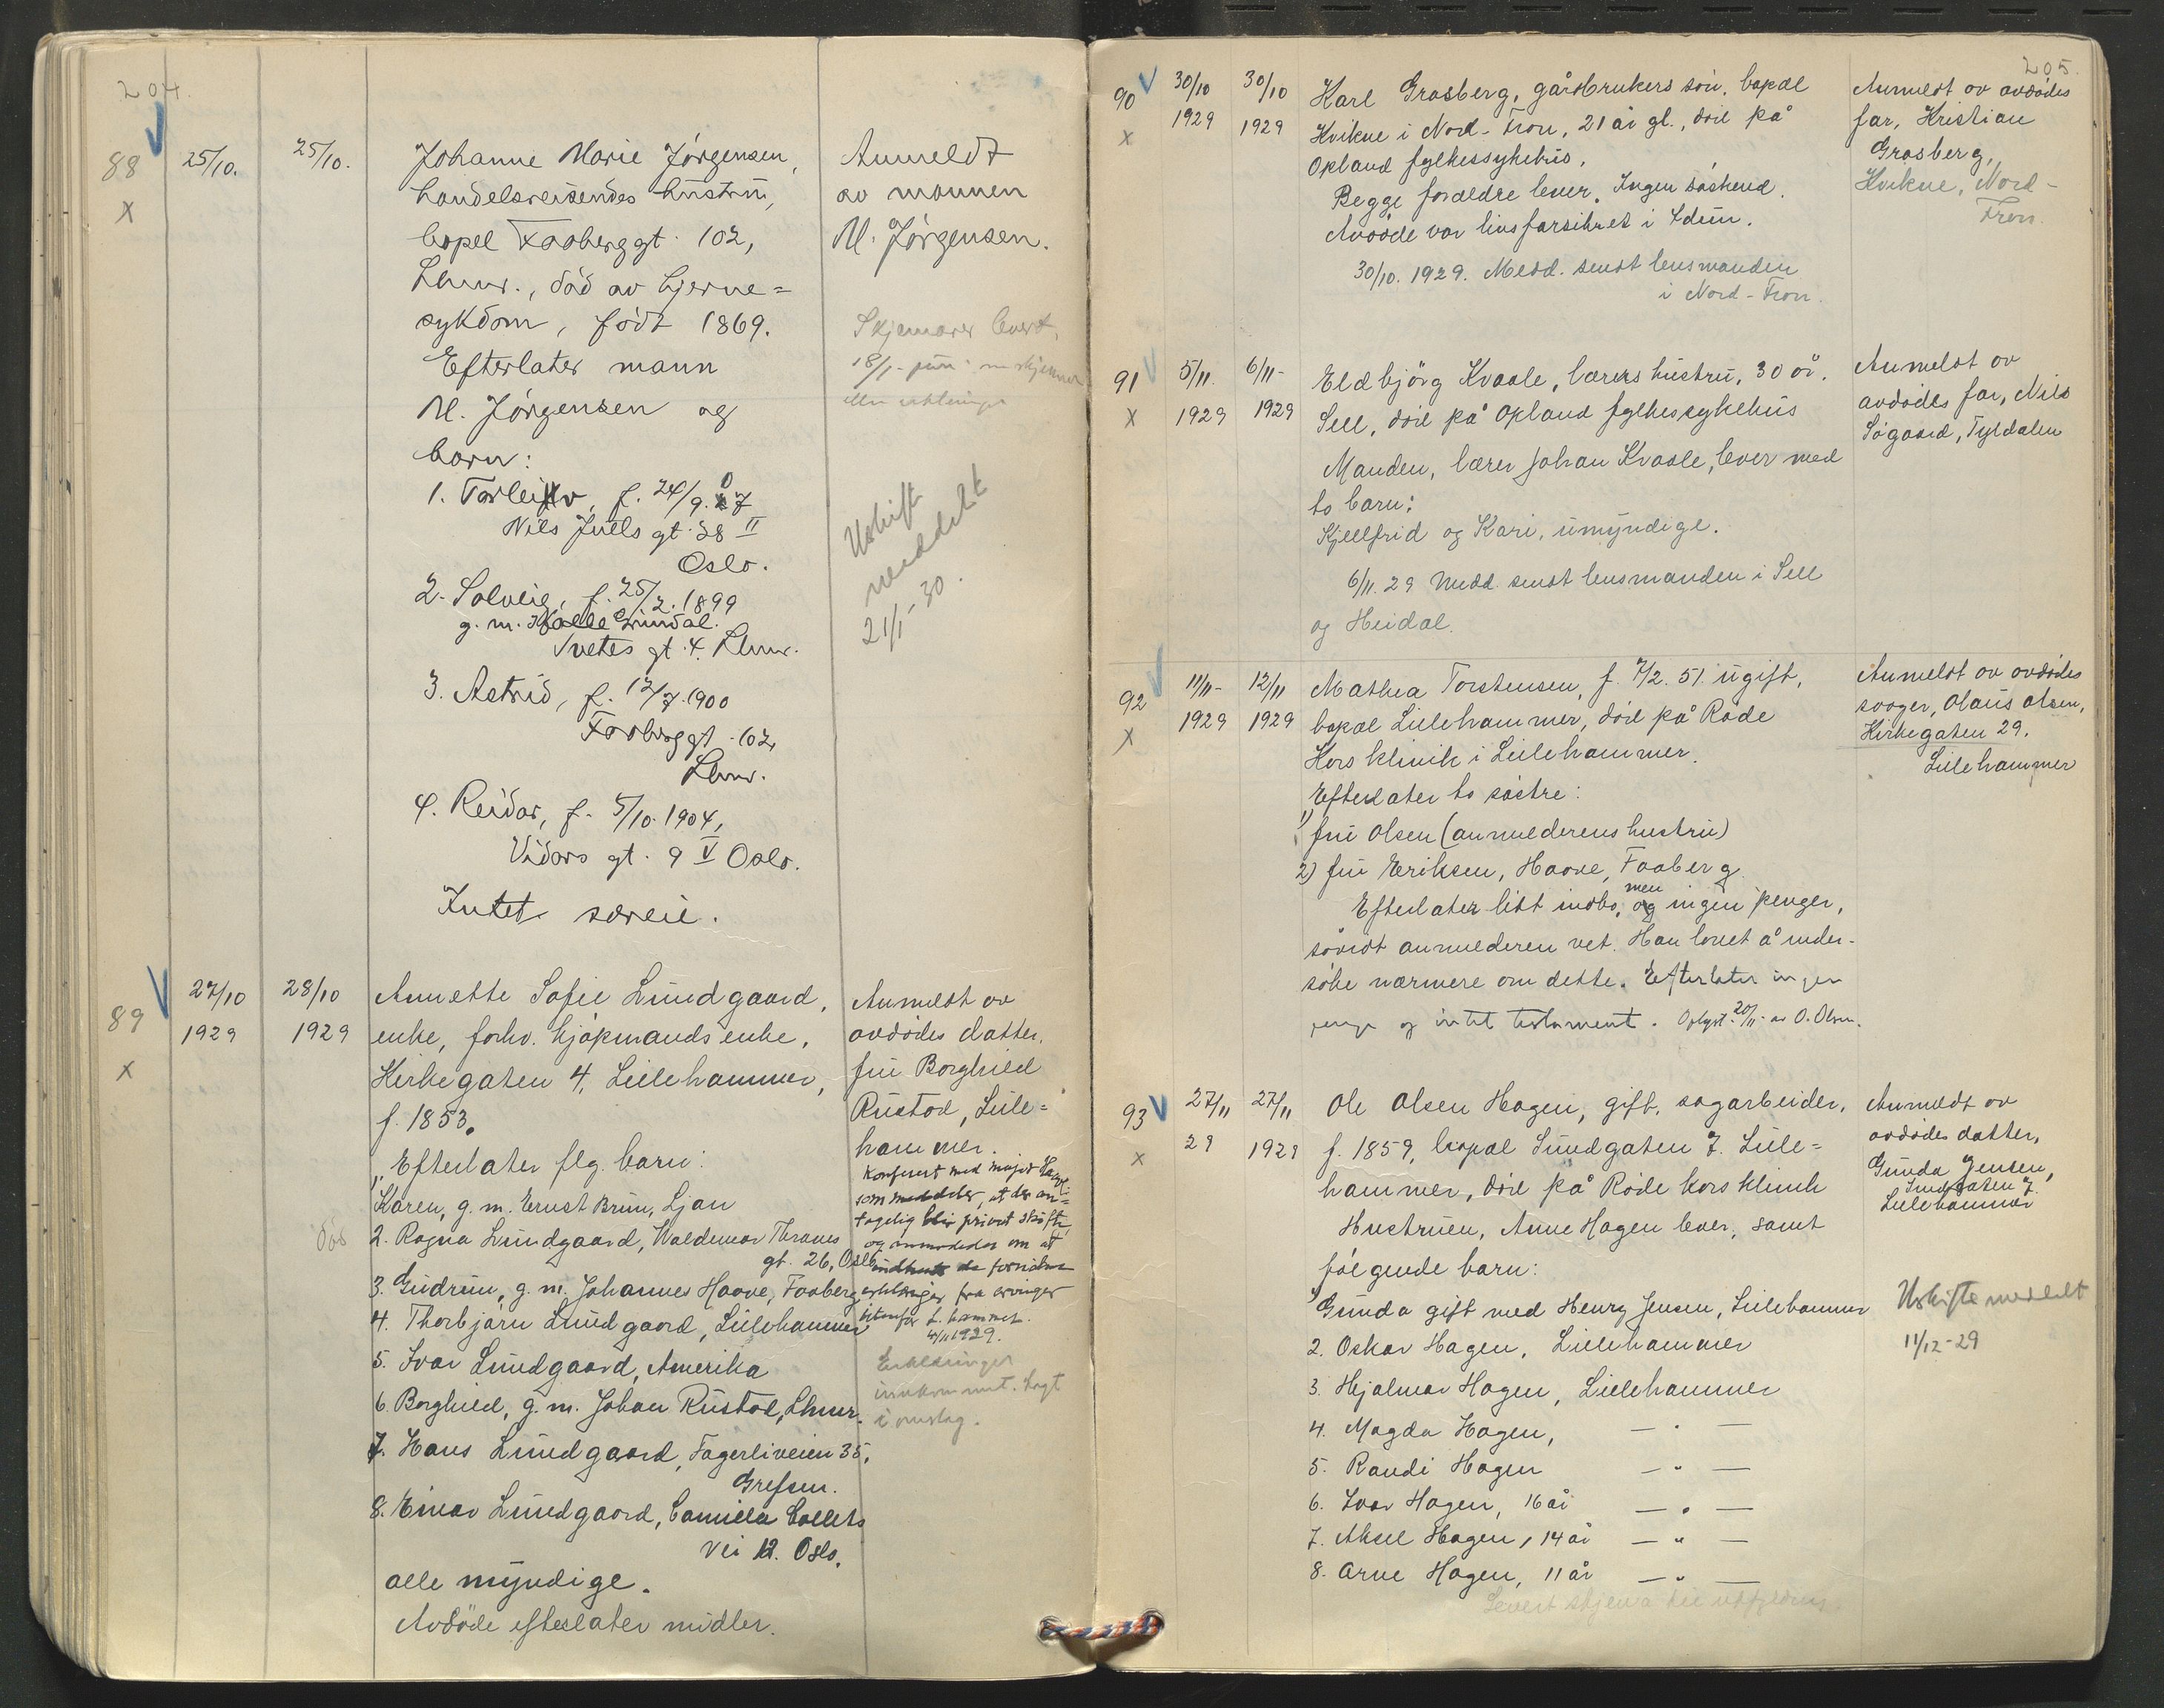 204.
88
x
25/10.
25/10.
Johanne Marie Jörgensen,
handelsreisendes hustru,
bopel Faaberggt. 102,
Lhmr., död av hjerne=
sykdom, född 1869.
Efterlater mann
M. Jörgensen og
barn:
1. Torleiv, f. 24/9. 07
Niels Juels gt. 38 II
Oslo.
2. Solveig, f. 25/2. 1899
g. m.
gt. 4. Lhmr.
3. Astrid, f. 12/7. 1900
Faaberggt. 102,
Lhmr.
4. Reidar, f. 5/10. 1904,
Vidars gt. 9 V Oslo.
Intet særeie.
Anmeldt
av mannen
M. Jörgensen.
Skjemaer levert,
18/1-
Uskift
meddelt
21/1-30.
89
x
27/10
1929
28/10
1929
Annette Sofie Lundgaard,
enke, forhv. kjøpmands enke,
Kirkegaten 4, Lillehammer,
f. 1853.
Efterlater flg. barn:
1, Karen, g. m. Ernst Bruun, Ljan
död 2. Ragna Lundgaard, Waldemar Thranes
gt. 26, Oslo
3. Gudrun, g. m. Johannes Haave, Faaberg
4. Thorbjørn Lundgaard, Lillehammer
5. Ivar Lundgaard, Amerika
6. Borghild, g. m. Johan Rustad, Lhmr.
7. Hans Lundgaard, Fagerliveien 35,
Grefsen.
8. Einar Lundgaard, Camilla Colletts
vei 12. Oslo.
alle myndige.
Avdöde efterlater midler.
Anmeldt av
avdödes datter,
fru Borghild
Rustad, Lille=
hammer.
Konferert med major
som meddeler, at der an=
tagelig blir privat skifte,
og anmodedes om at
erklæringer fra arvinger
utenfor L. hammer.
4/11 1929.
Erklæringer
innkommet. Lagt
i omslag.
205.
90
x
30/10
1929
30/10
1929
Karl Grasberg, gårdbrukers sön, bopæl
Kvikne i Nord-Fron, 21 år gl., död på
Opland fylkessykehus.
Begge forældre lever. Ingen söskend.
Avdöde var livsforsikret i Idun.
30/10. 1929. Medd. sendt lensmanden
i Nord-Fron.
Anmeldt av avdödes
far, Kristian
Grasberg,
Kvikne, Nord-
Fron.
91
x
5/11.
1929
6/11-
1929
Eldbjörg Kvaale, lærers hustru, 30 år.
Sell, död på Opland fylkessykehus
Manden, lærer Johan Kvaale, lever med
to barn:
Kjellfrid og Kari, umyndige.
6/11. 29 Medd sendt lensmanden i Sell
og Heidal.
Anmeldt av
avdödes far, Nils
Sögaard, Tyldalen
92
x
11/11-
1929
12/11
1929
Mathea Torstensen, f. 7/2. 51. ugift,
bopæl Lillehammer, död på Röde
Kors klinik i Lillehammer.
Efterlater to söstre:
1) fru Olsen (anmelderens hustru)
2) fru Eriksen, Haave, Faaberg.
Efterlater litt indbo, men ingen penger,
såvidt anmelderen vet. Han lovet å under-
söke nærmere om dette. Efterlater ingen
penger og intet testament. Oplyst 20/11- av O. Olsen.
Anmeldt av avdödes
svoger, Olaus Olsen,
Kirkegaten 29.
Lillehammer
93
x
27/11
29
27/11
1929
Ole Olsen Hagen, gift, sagarbeider,
f. 1859, bopæl Sundgaten 7. Lille=
hammer, död på Röde kors klinik
Hustruen, Anne Hagen lever, samt
fölgende barn:
1) Gunda gift med Henry Jensen, Lillehammer
2. Oskar Hagen, Lillehammer
3. Hjalmar Hagen, Lillehammer
4. Magda Hagen, — " —
5. Randi Hagen — " —
6. Ivar Hagen, 16 år — " —
7. Aksel Hagen, 14 år — " —
8. Arne Hagen, 11 år — " —
Levert skjema til utfyldning
Anmeldt av
avdödes datter,
Gunda Jensen,
Sundgaten 7.
Lillehammer
Uskifte meddelt
11/12-29